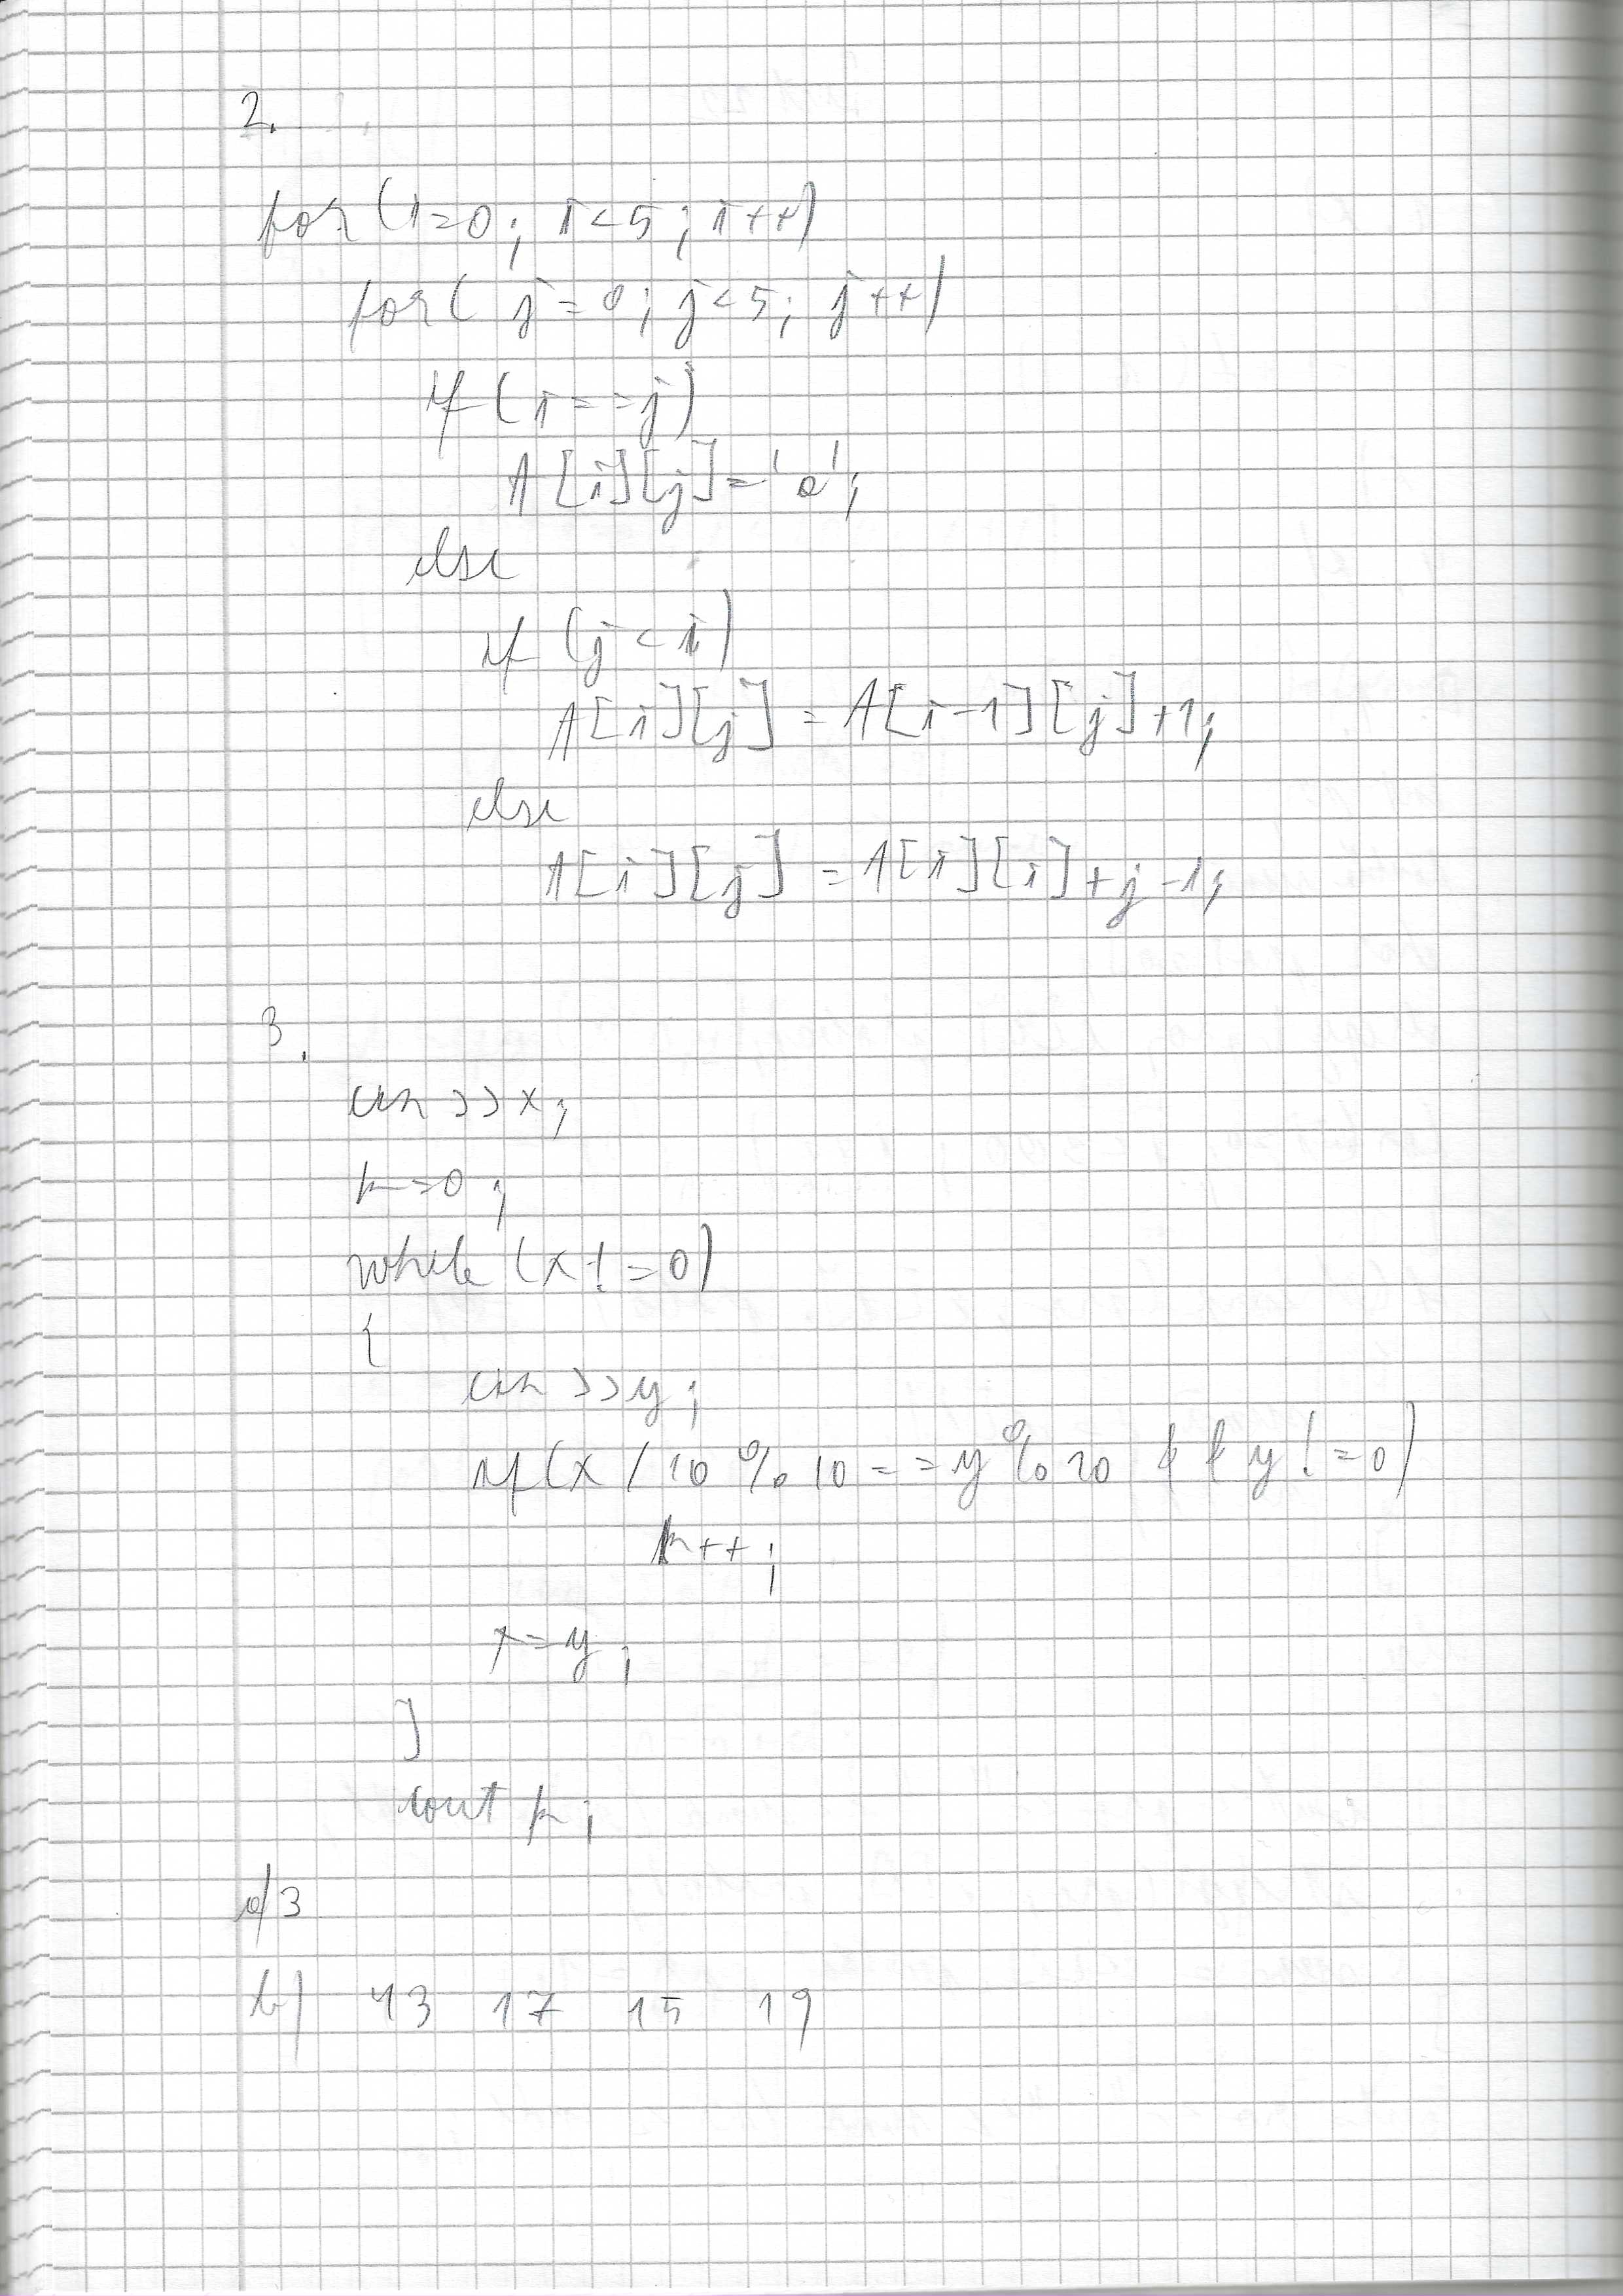 2.
for (i=0; i<5; i++)
for( j=0; j<5; j++)
if (i==j)
A[i][j]='a';
else
if (j<i)
A[i][j] = A[i-1][j]+1;
else
A[i][j] = A[i][i]+j-1;
3.
cin >>x;
k=0;
while (x!=0)
{
cin >>y;
if(x/10%10==y%20 && y!=0)
k++;
x=y;
}
cout k;
a) 3
b) 43 17 15 19